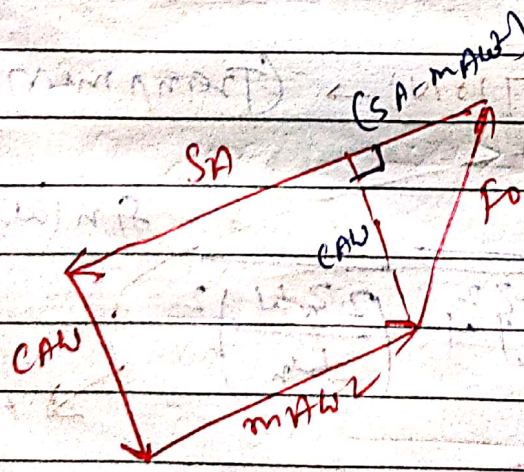 (SA-mAω²)
SA
Fo
CAω
CAω
mAω²